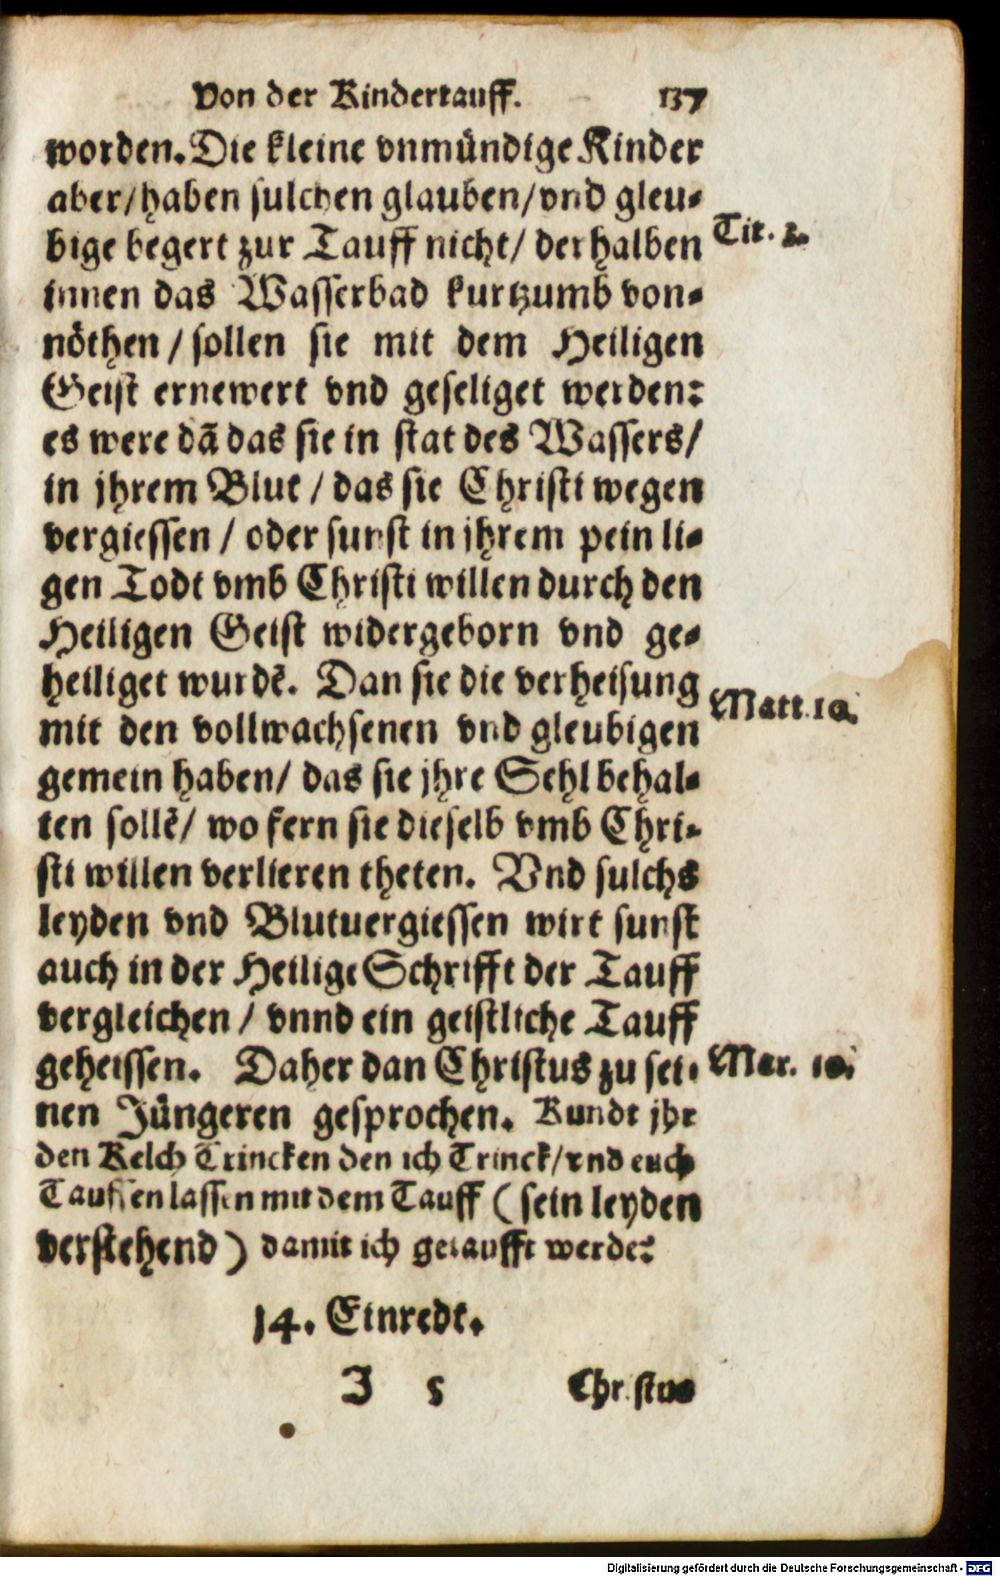 Von der Kindertauff. 137
worden. Die kleine vnmündige Kinder
aber/haben sulchen glauben/vnd gleu-
bige begert zur Tauff nicht/ derhalben
Tit. 3.
innen das Wasserbad kurtzumb von-
nöthen / sollen sie mit dem Heiligen
Geist ernewert vnd geseliget werden:
es were dã das sie in stat des Wassers/
in jhrem Blut / das sie Christi wegen
vergiessen / oder sunst in jhrem pein li-
gen Todt vmb Christi willen durch den
Heiligen Geist widergeborn vnd ge-
heiliget wurdẽ. Dan sie die verheisung
Matt. 10.
mit den vollwachsenen vnd gleubigen
gemein haben/ das sie jhre Sehl behal-
ten sollẽ/ wo fern sie dieselb vmb Chri-
sti willen verlieren theten. Vnd sulchs
leyden vnd Blutuergiessen wirt sunst
auch in der Heilige Schrifft der Tauff
vergleichen / vnnd ein geistliche Tauff
geheissen. Daher dan Christus zu sei-
Mar. 10.
nen Jüngeren gesprochen. Kundt jhr
den Kelch Trincken den ich Trinck/vnd euch
Tauffen lassen mit dem Tauff ( sein leyden
verstehend ) damit ich getaufft werde:
14. Einredt.
J 5 Christus
Digitalisierung gefördert durch die Deutsche Forschungsgemeinschaft - DFG